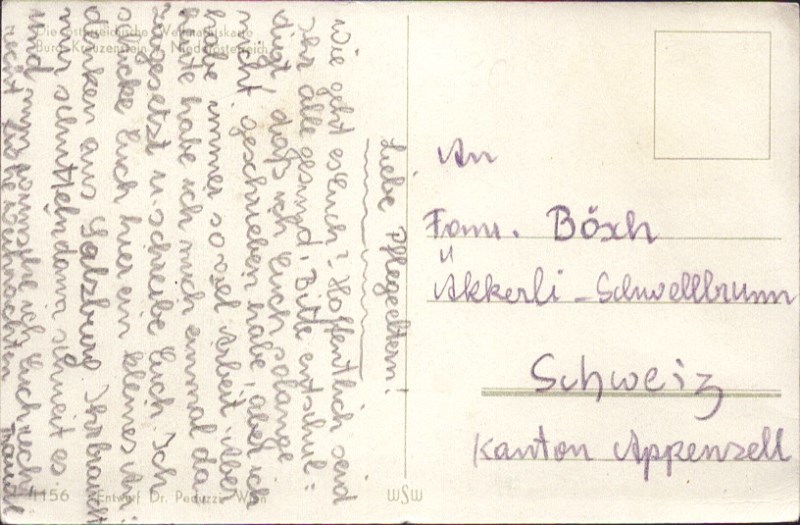 Die österreichische Weihnachtskarte
Burg Kreuzenstein, Niederösterreich
Liebe Pflegeeltern!
Wie geht es Euch? Hoffentlich seid
Ihr alle gesund! Bitte entschul=
digt, daß ich Euch solange
nicht geschrieben habe, aber ich
habe immer soviel Arbeit. Aber
heute habe ich mich einmal da
zugesetzt u. schreibe Euch. Ich
schicke Euch hier ein kleines An=
denken aus Salzburg. Ihr braucht
nur schütteln dann schneit es
und nun wünsche ich Euch recht
recht frohe Weihnachten
Traudl
1156 Entwurf Dr. Peduzzi, Wien
WSW
An
Fam. Bösch
Äkkerli - Schwellbrunn
Schweiz
Kanton Appenzell